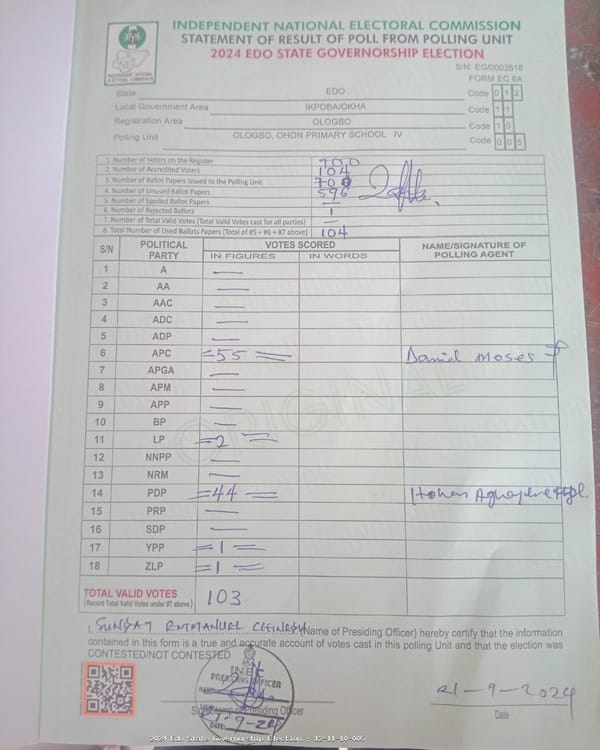 INDEPENDENT NATIONAL ELECTORAL COMMISSION
STATEMENT OF RESULT OF POLL FROM POLLING UNIT
2024 EDO STATE GOVERNORSHIP ELECTION
S/N. EG/0002618
FORM EC 8A
INDEPENDENT NATIONAL
ELECTORAL COMMISSION
State EDO Code 0 1 2
Local Government Area IKPOBA/OKHA Code 1 1
Registration Area OLOGBO Code 1 0
Polling Unit OLOGBO, OHON PRIMARY SCHOOL IV Code 0 0 5
1. Number of Voters on the Register 700
2. Number of Accredited Voters 104
3. Number of Ballot Papers Issued to the Polling Unit 700
4. Number of Unused Ballot Papers 596
5. Number of Spoiled Ballot Papers —
6. Number of Rejected Ballots 1
7. Number of Total Valid Votes (Total Valid Votes cast for all parties) —
8. Total Number of Used Ballots Papers (Total of #5 + #6 + #7 above) 104
S/N POLITICAL PARTY VOTES SCORED NAME/SIGNATURE OF POLLING AGENT
IN FIGURES IN WORDS
1 A —
2 AA —
3 AAC —
4 ADC —
5 ADP —
6 APC =55= Daniel Moses
7 APGA —
8 APM —
9 APP —
10 BP —
11 LP =2=
12 NNPP —
13 NRM —
14 PDP =44=
15 PRP —
16 SDP —
17 YPP =1=
18 ZLP =1=
ORIGINAL
TOTAL VALID VOTES 103
(Record Total Valid Votes under #7 above)
I, SUNDAY EMMANUEL (Name of Presiding Officer) hereby certify that the information
contained in this form is a true and accurate account of votes cast in this polling Unit and that the election was
CONTESTED/NOT CONTESTED
INEC
PRESIDING OFFICER
Presiding Officer
DATE:
21-9-2024
Date
2024 Edo State Governorship Election : 12-11-10-005